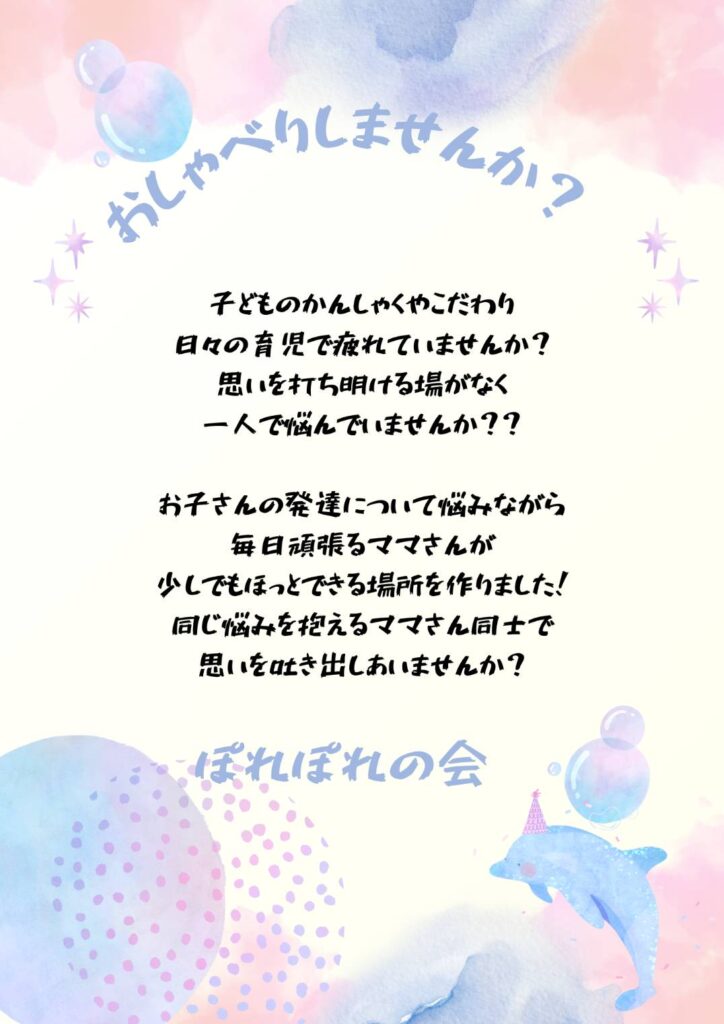 おしゃべりしませんか？
子どものかんしゃくやこだわり
日々の育児で疲れていませんか？
思いを打ち明ける場がなく
一人で悩んでいませんか？？
お子さんの発達について悩みながら
毎日頑張るママさんが
少しでもほっとできる場所を作りました！
同じ悩みを抱えるママさん同士で
思いを吐き出しあいませんか？
ぽれぽれの会